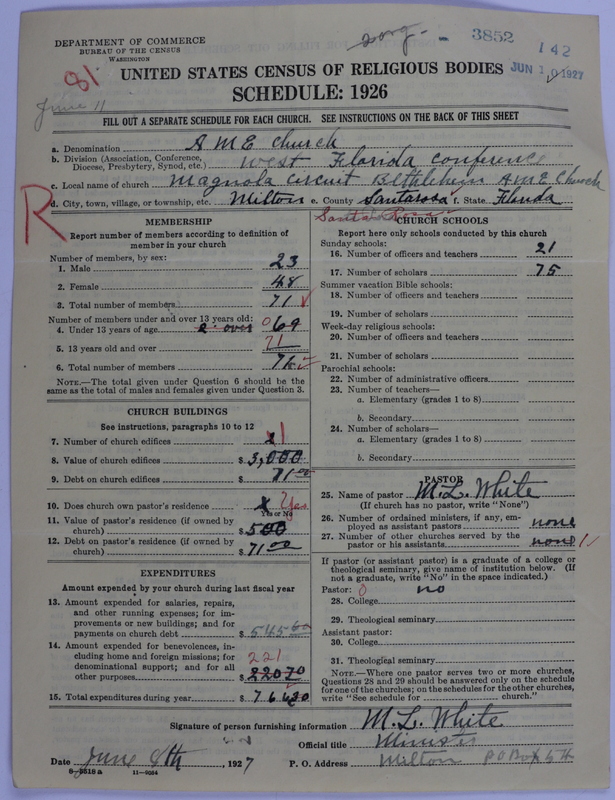 DEPARTMENT OF COMMERCE
BUREAU OF THE CENSUS
WASHINGTON
3852
142
81
June 11
UNITED STATES CENSUS OF RELIGIOUS BODIES
JUN 10 1927
SCHEDULE: 1926
FILL OUT A SEPARATE SCHEDULE FOR EACH CHURCH. SEE INSTRUCTIONS ON THE BACK OF THIS SHEET
a. Denomination A M E Church
b. Division (Association, Conference, Diocese, Presbytery, Synod, etc.) West Florida Conference
c. Local name of church Magnola Circuit Bethlehem AME Church
d. City, town, village, or township, etc. Milton e. County Santarosa f. State Florida
R
Santa Rosa
MEMBERSHIP
Report number of members according to definition of
member in your church
Number of members, by sex:
1. Male 23
2. Female 48
3. Total number of members 71
Number of members under and over 13 years old:
4. Under 13 years of age 2 over 0 69
5. 13 years old and over 71
6. Total number of members 71
NOTE.—The total given under Question 6 should be the
same as the total of males and females given under Question 3.
CHURCH BUILDINGS
See instructions, paragraphs 10 to 12
7. Number of church edifices 1
8. Value of church edifices $3,000
9. Debt on church edifices $ 71 00
10. Does church own pastor's residence Yes
Yes or No
11. Value of pastor's residence (if owned by
church) $500
12. Debt on pastor's residence (if owned by
church) $71 00
EXPENDITURES
Amount expended by your church during last fiscal year
13. Amount expended for salaries, repairs,
and other running expenses; for im-
provements or new buildings; and for
payments on church debt $545 60
14. Amount expended for benevolences, in-
cluding home and foreign missions; for
denominational support; and for all
other purposes 221 $22070
15. Total expenditures during year $766
CHURCH SCHOOLS
Report here only schools conducted by this church
Sunday schools:
16. Number of officers and teachers 21
17. Number of scholars 75
Summer vacation Bible schools:
18. Number of officers and teachers
19. Number of scholars
Week-day religious schools:
20. Number of officers and teachers
21. Number of scholars
Parochial schools:
22. Number of administrative officers
23. Number of teachers—
a. Elementary (grades 1 to 8)
b. Secondary
24. Number of scholars—
a. Elementary (grades 1 to 8)
b. Secondary
PASTOR
25. Name of pastor M. L. White
(If church has no pastor, write "None")
26. Number of ordained ministers, if any, em-
ployed as assistant pastors none
27. Number of other churches served by the
pastor or his assistants none 1
If pastor (or assistant pastor) is a graduate of a college or
theological seminary, give name of institution below. (If
not a graduate, write "No" in the space indicated.)
Pastor: 0 no
28. College
29. Theological seminary
Assistant pastor:
30. College
31. Theological seminary
NOTE.—Where one pastor serves two or more churches,
Questions 28 and 29 should be answered only on the schedule
for one of the churches; on the schedules for the other churches,
write "See schedule for church."
Signature of person furnishing information M. L. White
Official title Minister
Date June 8th, 1927 P. O. Address Milton P O Box 54
8—3518 a 11—9034